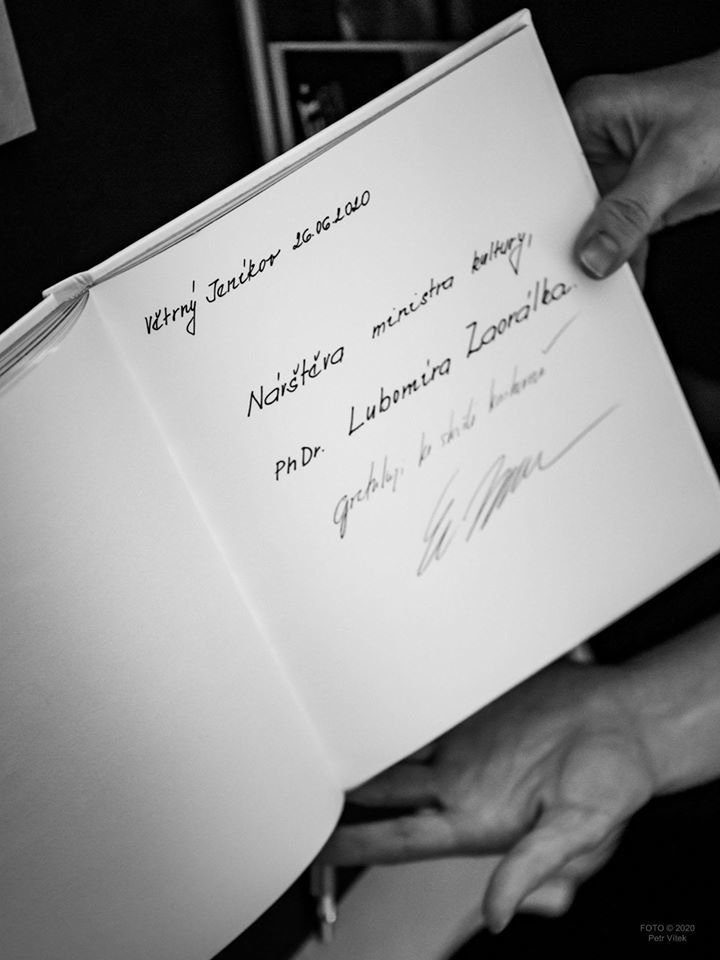 Větrný Jeníkov 26.06.2020
Návštěva ministra kultury,
PhDr. Lubomíra Zaorálka.
gratuluji ke skvělé knihovně
FOTO © 2020
Petr Vítek